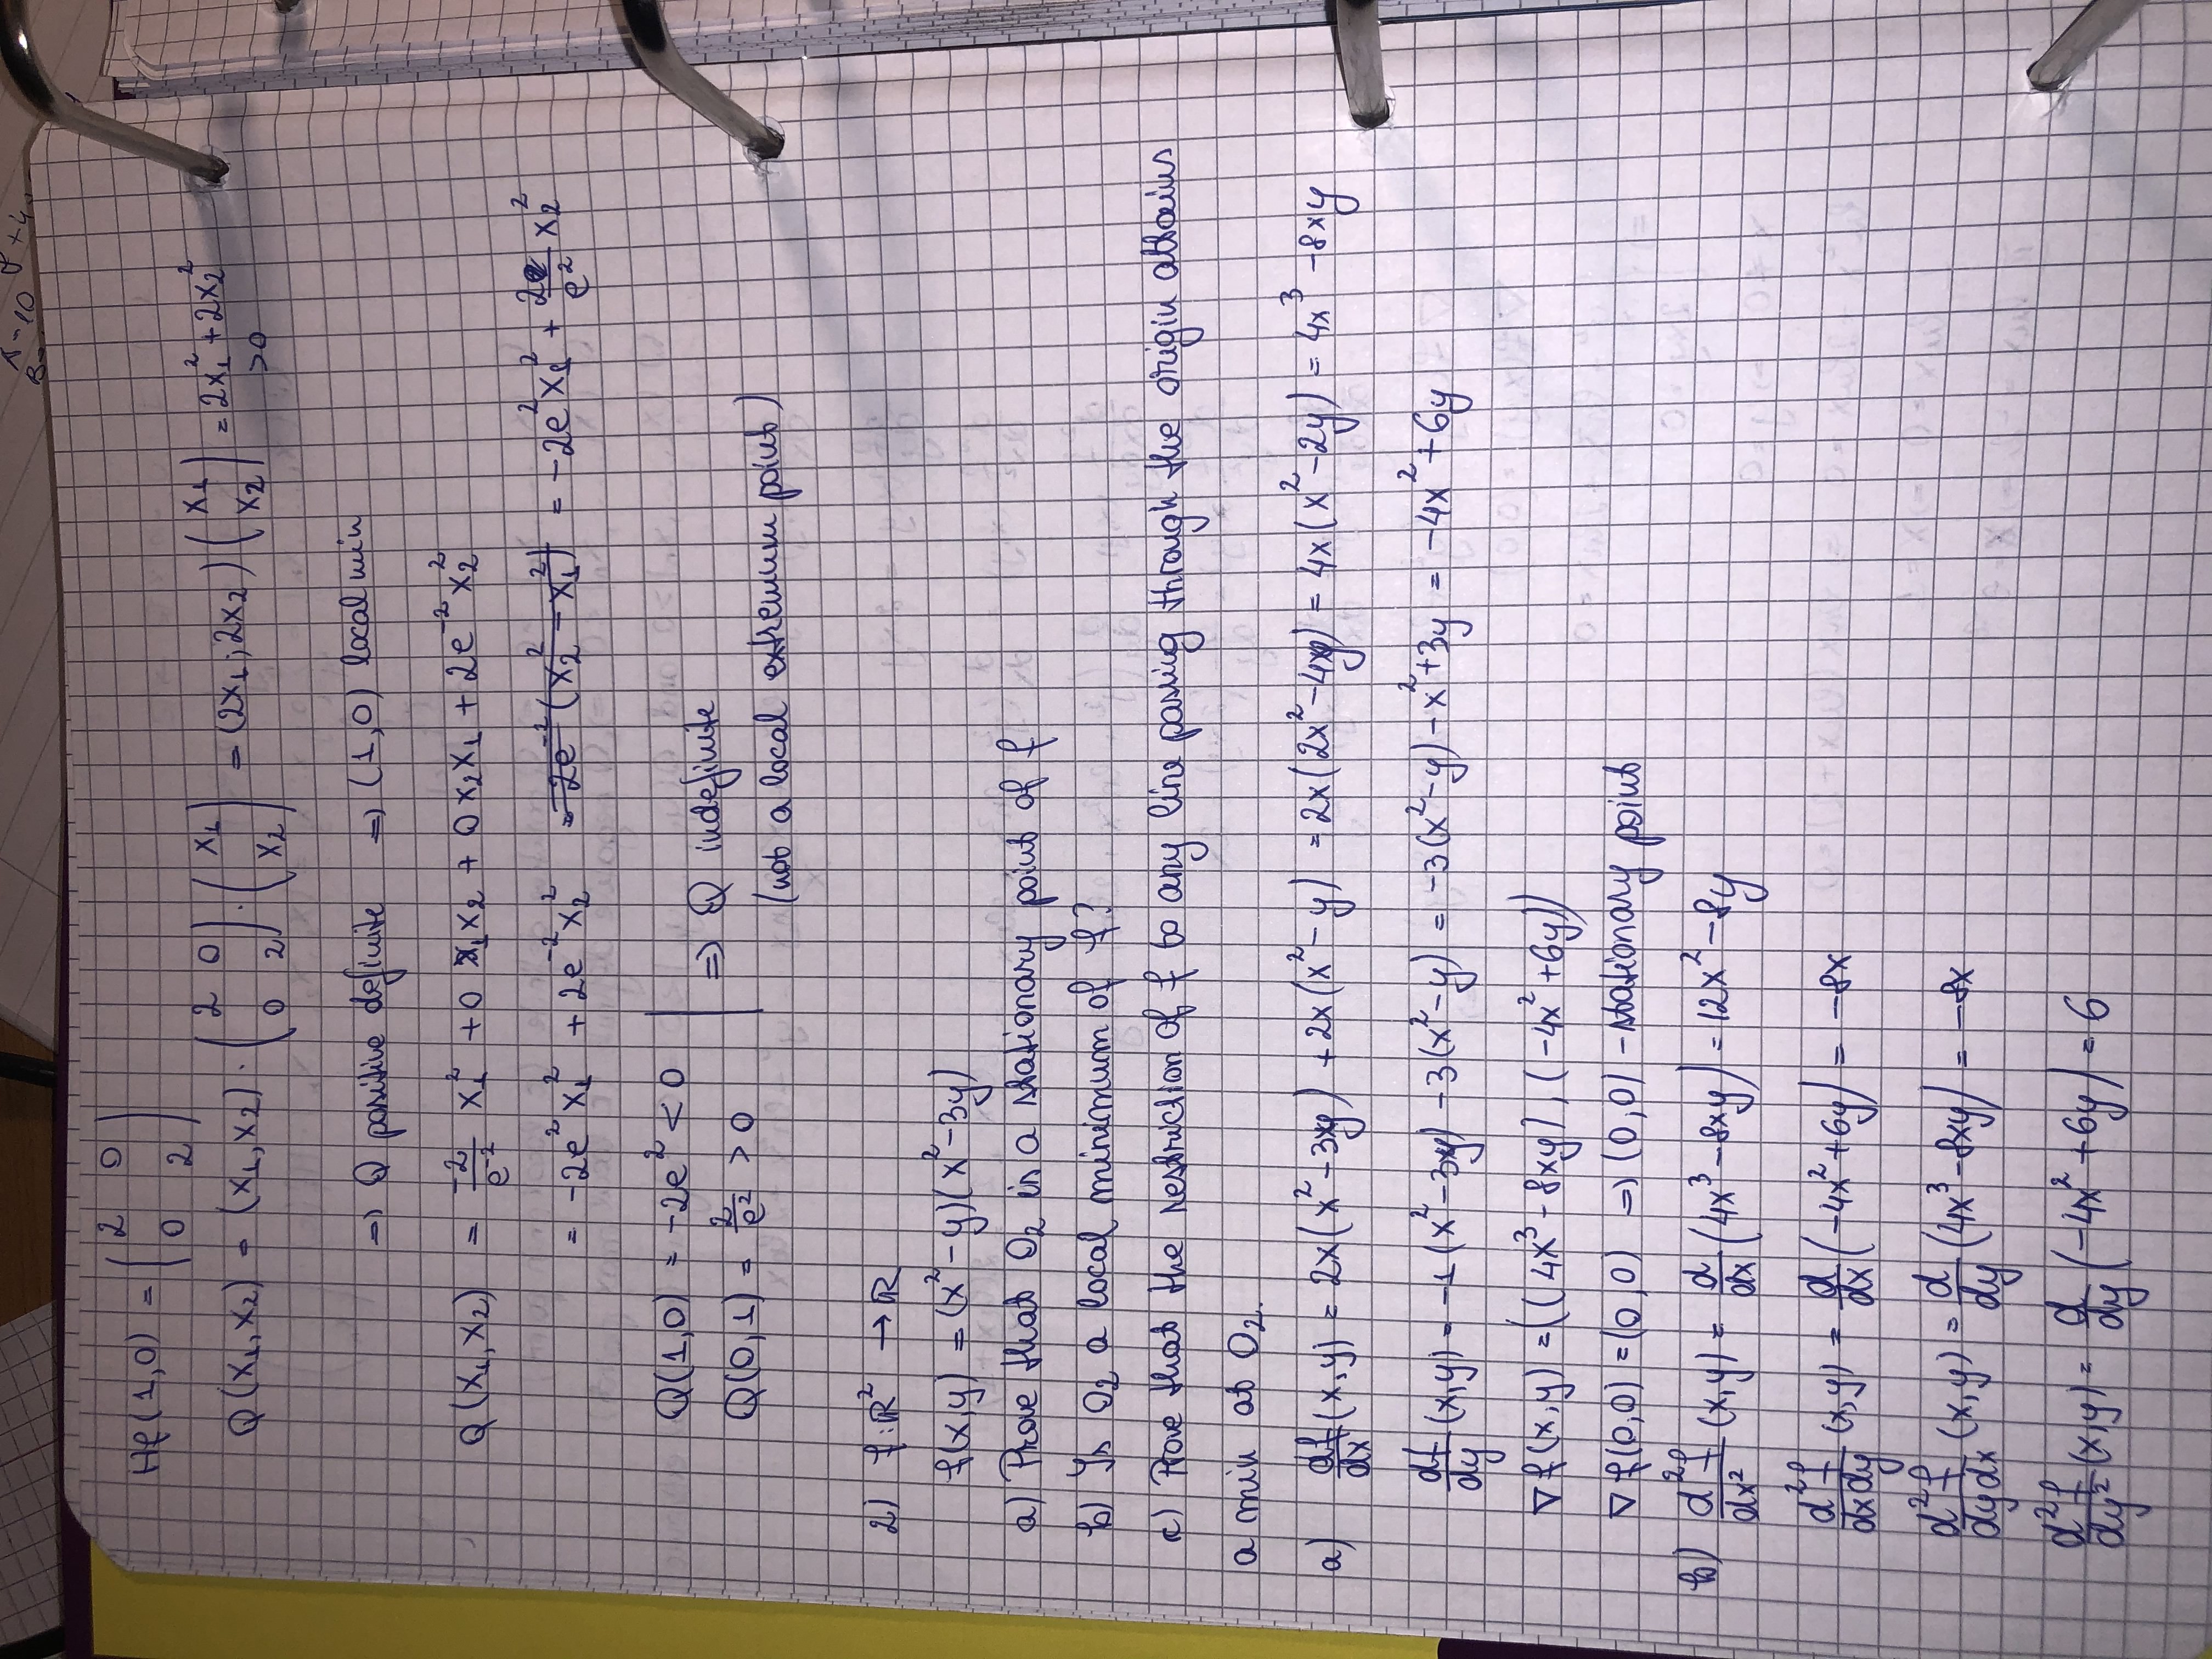 A = 10 8 + 4
B = 10
Hf(1,0) = ( 2 0 0 2 )
Q(x₁,x₂) = (x₁,x₂) · ( 2 0 0 2 ) · ( x₁ x₂ ) = (2x₁; 2x₂) ( x₁ x₂ ) = 2x₁² + 2x₂² >0
=> Q positive definite => (1,0) local min
Q(x₁,x₂) = -2/e⁻² x₁² + 0 x₁x₂ + 0x₂x₁ + 2e⁻² x₂²
= -2e² x₁² + 2e⁻² x₂² = 2e⁻² (x₂² - x₁²) = -2e² x₁² + 2/e² x₂²
Q(1,0) = -2e² < 0
Q(0,1) = 2/e² > 0
=> Q indefinite
(not a local extremum point)
2) f: ℝ² → ℝ
f(x,y) = (x² - y)(x² - 3y)
a) Prove that O₂ is a stationary point of f
b) Is O₂ a local minimum of f?
c) Prove that the restriction of f to any line passing through the origin attains
a min at O₂.
a) df/dx (x,y) = 2x(x² - 3y) + 2x(x² - y) = 2x(2x² - 4y) = 4x(x² - 2y) = 4x³ - 8xy
df/dy (x,y) = -1(x² - 3y) - 3(x² - y) = -3(x² - y) - x² + 3y = -4x² + 6y
∇f(x,y) = ((4x³ - 8xy), (-4x² + 6y))
∇f(0,0) = (0,0) => (0,0) - stationary point
b) d²f/dx² (x,y) = d/dx (4x³ - 8xy) = 12x² - 8y
d²f/dxdy (x,y) = d/dx (-4x² + 6y) = -8x
d²f/dydx (x,y) = d/dy (4x³ - 8xy) = -8x
d²f/dy² (x,y) = d/dy (-4x² + 6y) = 6